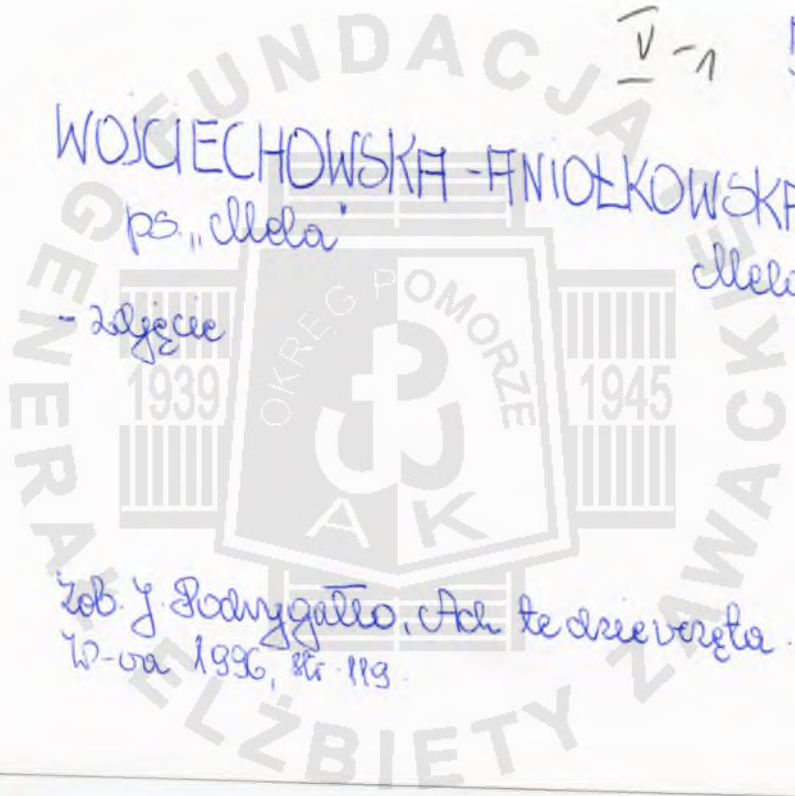 V-1
WOJCIECHOWSKA-ANIOŁKOWSKA
ps. „Mela"
- zdjęcie
Zob. J. Podrygałło, Ach te dziewczęta.
W-wa 1996, str. 119.
FUNDACJA
GENERAŁ ELŻBIETY ZAWACKIEJ
OKRĘG POMORZE
1939
1945
AK